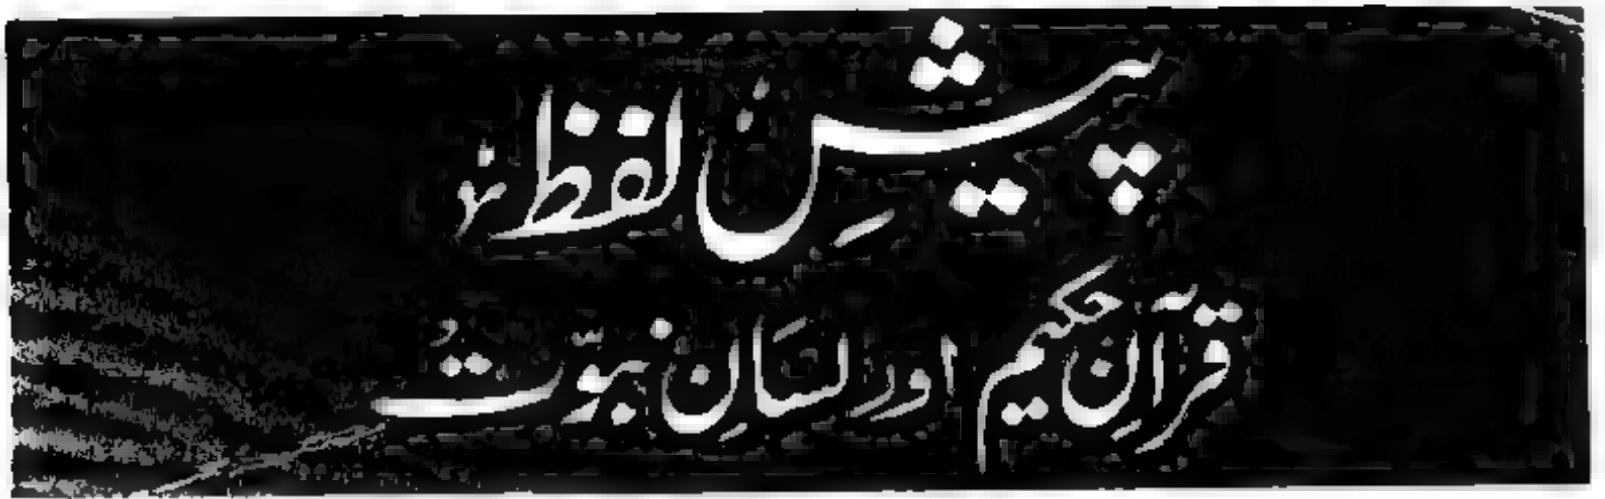 پیشِ لفظ
قرآنِ حکیم اور لسانِ نبوّت